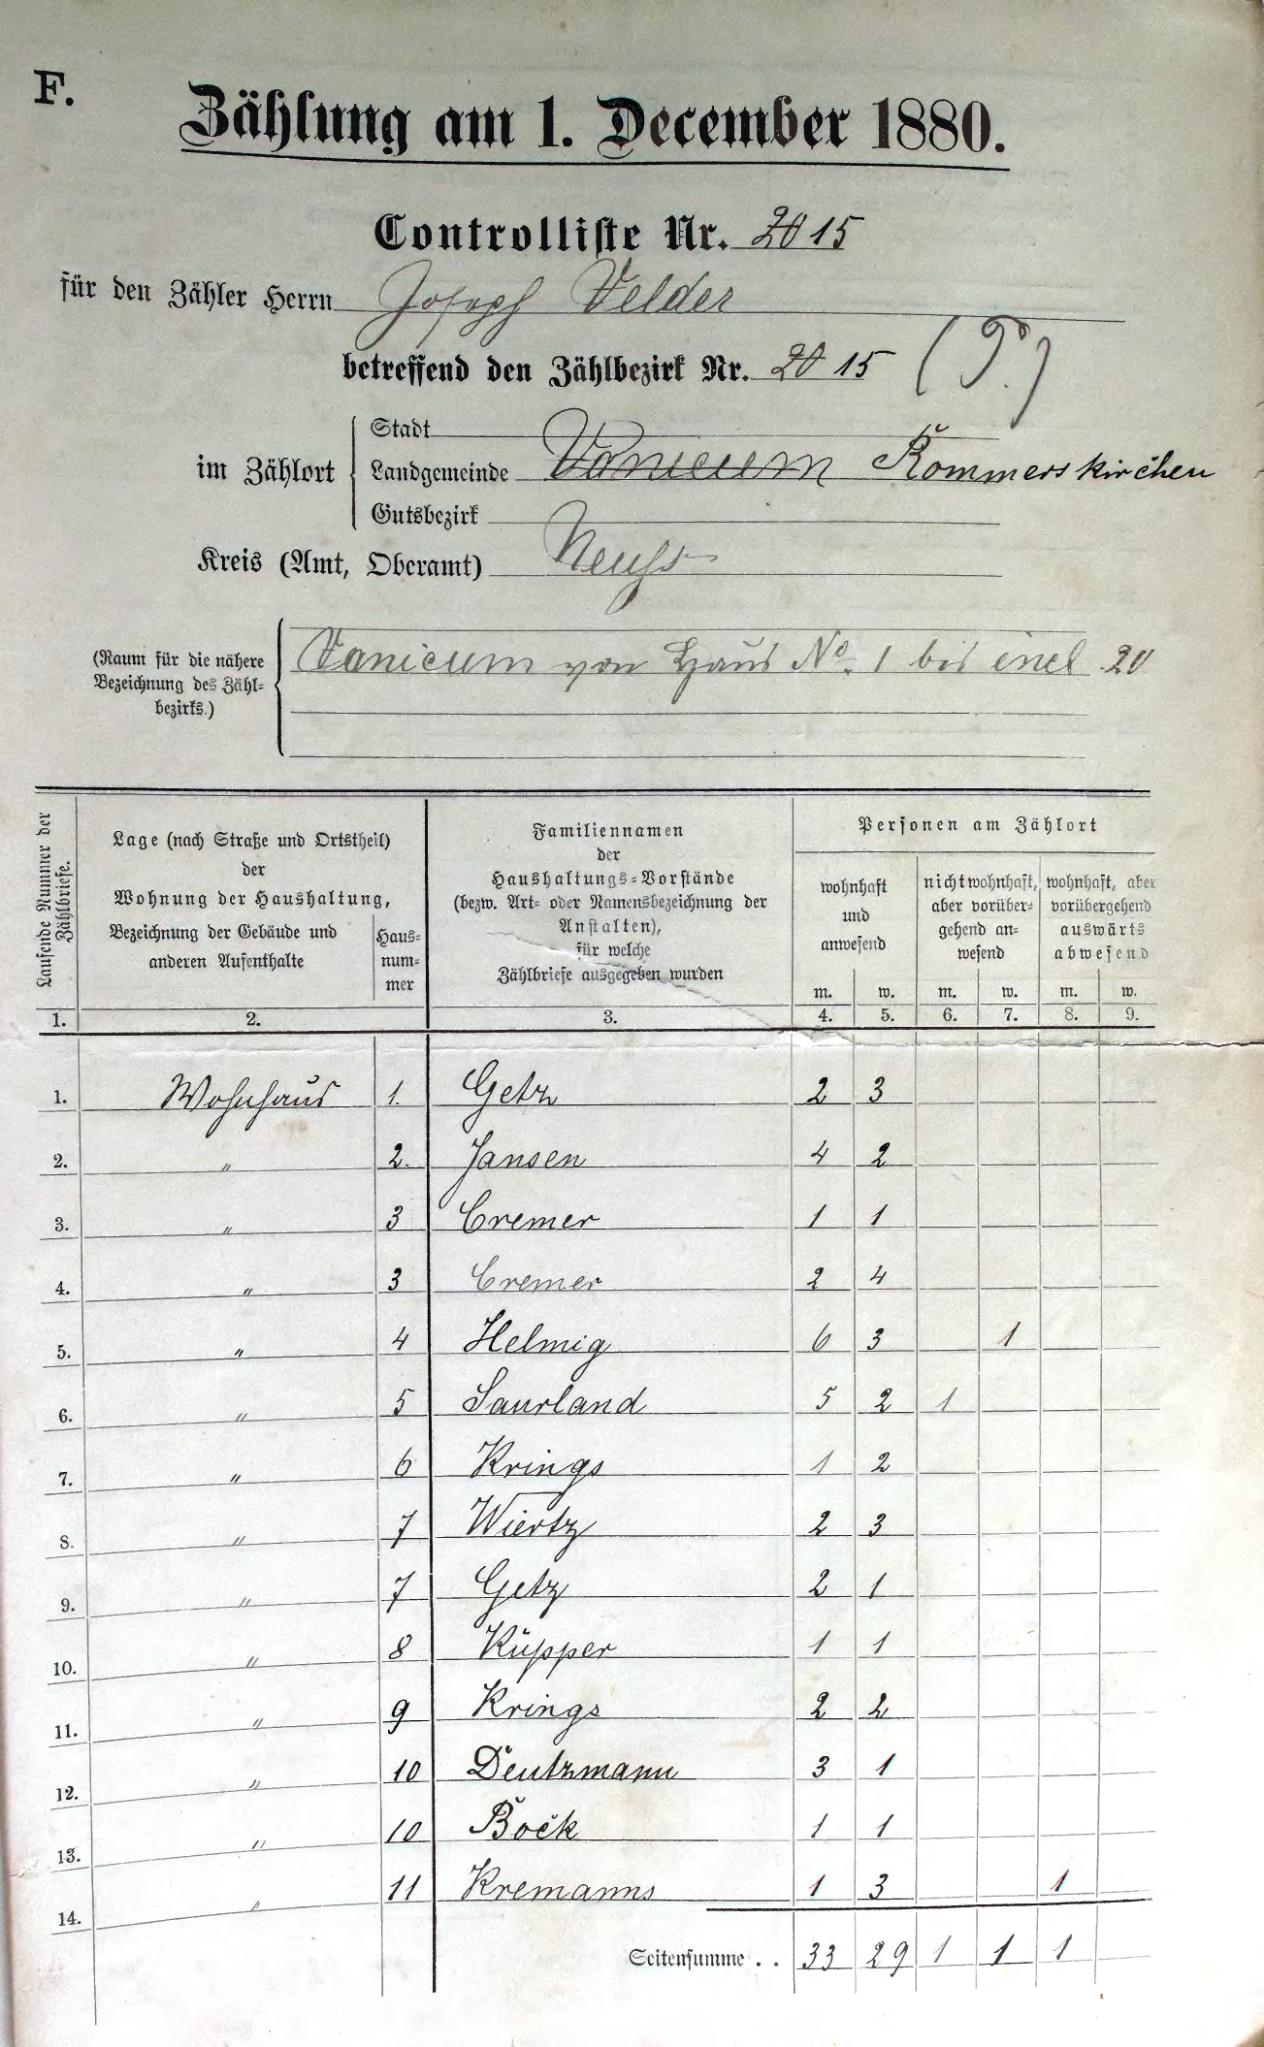 F.
Zählung am 1. December 1880.
Controlliste Nr. 20 15
für den Zähler Herrn Joseph Velder
betreffend den Zählbezirk Nr. 20 15 (P.)
im Zählort
Stadt
Landgemeinde Vanicum Rommerskirchen
Gutsbezirk
Kreis (Amt, Oberamt) Neuss
(Raum für die nähere Bezeichnung des Zähl=
bezirks.)
Vanicum von Haus No. 1 bis incl 20
Laufende Nummer der Zählbriefe.
Lage (nach Straße und Ortstheil)
der
Wohnung der Haushaltung,
Bezeichnung der Gebäude und
anderen Aufenthalte
Haus=
num=
mer
Familiennamen
der
Haushaltungs=Vorstände
(bezw. Art= oder Namensbezeichnung der
Anstalten),
für welche
Zählbriefe ausgegeben wurden
Personen am Zählort
wohnhaft
und
anwesend
nicht wohnhaft,
aber vorüber=
gehend an=
wesend
wohnhaft, aber
vorübergehend
auswärts
abwesend
m. w. m. w. m. w.
1. 2. 3. 4. 5. 6. 7. 8. 9.
1. Wohnhaus 1. Getz 2 3
2. " 2. Jansen 4 2
3. " 3 Cremer 1 1
4. " 3 Cremer 2 4
5. " 4 Helmig 6 3 1
6. " 5 Saurland 5 2 1
7. " 6 Krings 1 2
8. " 7 Wiertz 2 3
9. " 7 Getz 2 1
10. " 8 Küpper 1 1
11. " 9 Krings 2 2
12. " 10 Deutzmann 3 1
13. " 10 Bock 1 1
14. " 11 Kremanns 1 3 1
Seitensumme . . 33 29 1 1 1